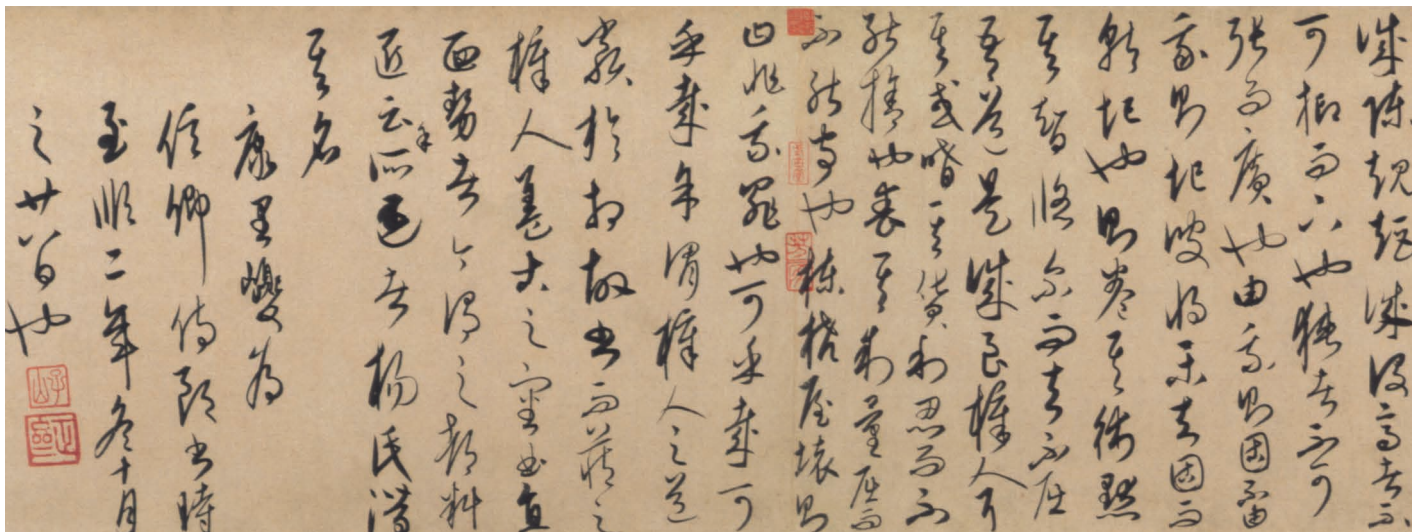 誠陳規矩誠設高者不
可抑而下也狹者不可
張而廣也由我則固不由
我則圮彼將樂去固而
就圮也則卷其術默
其智悠尔而去不屈
吾道是誠良梓人耳
其或嗜其貨利忍而不
能捨也喪其制量屈而
不能守也棟橈屋壞則
曰非我罪也可乎哉可
乎哉余謂梓人之道
類於相故書而藏之
梓人蓋古之審曲直
面勢者今謂之都料
匠云余所遇者楊氏潛
其名
康里巎為
信卿侍郎書時
至順二年冬十月
之廿八日也
子山
正齋